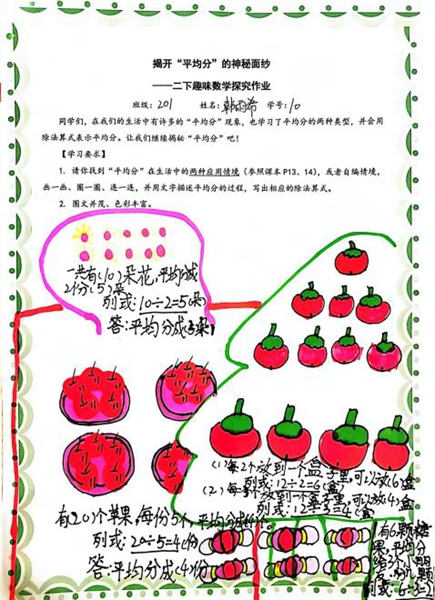 揭开“平均分”的神秘面纱
——二下趣味数学探究作业
班级：201 姓名：韩雨希 学号：10
同学们，在我们的生活中有许多的“平均分”现象，也学习了平均分的两种类型，并会用
除法算式表示平均分。让我们继续揭秘“平均分”吧！
【学习要求】
1. 请你找到“平均分”在生活中的两种应用情境（参照课本P13、14），或者自编情境，
画一画、圈一圈、连一连，并用文字描述平均分的过程，写出相应的除法算式。
2. 图文并茂、色彩丰富。
一共有(10)朵花，平均分成
2份(5)朵
列式：10÷2=5(朵)
答：平均分成5朵
(1)每2个放到一个盒子里，可以放(6)盒
列式：12÷2=6(盒)
(2)每3个放到一个盒子里，可以放(4)盒
列式：12÷3=4(盒)
有20个苹果，每份5个，平均分成
列式：20÷5=4份
答：平均分成(4)份
有6颗糖
果，平均分
给3个人，
列式：6÷3=2